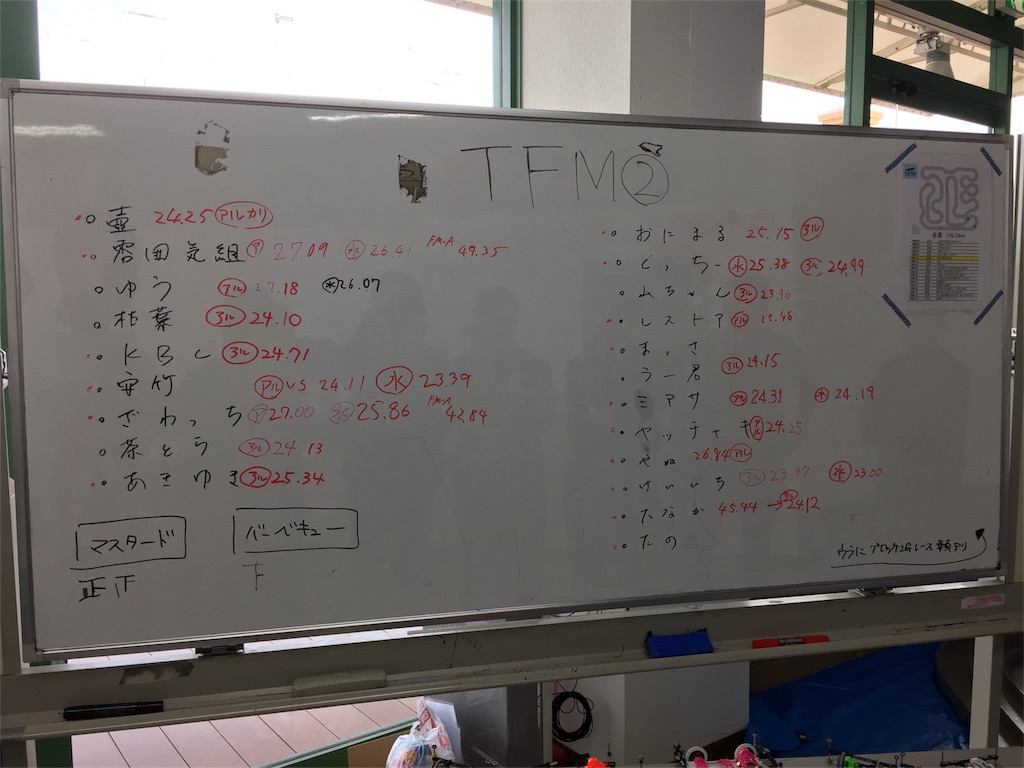 TFM②
壺 24.25 アルカリ
雰囲気組 ア 27.09 水 26.41 FM-A 49.35
ゆう アル 27.18 水 26.07
枯葉 アル 24.10
KBC アル 24.71
守竹 アルVS 24.11 水 23.39
ざわっち ア 27.00 水 25.86 FM-A 42.84
茶とら アル 24.13
あきゆき アル 25.34
マスタード
正下
バーベキュー
下
おにまる 25.15 アル
どっちー 水 25.38 アル 24.99
山ちゃん アル 23.96
レストア アル 25.48
まっさ
う一君 アル 24.15
ミアサ アル 24.31 水 24.19
ヤッチャキ 24.25
やね 26.84 アル
けいいち アル 23.97 水 23.00
たなか 45.44 → アル 24.12
たの
ウラに
レース
アリ